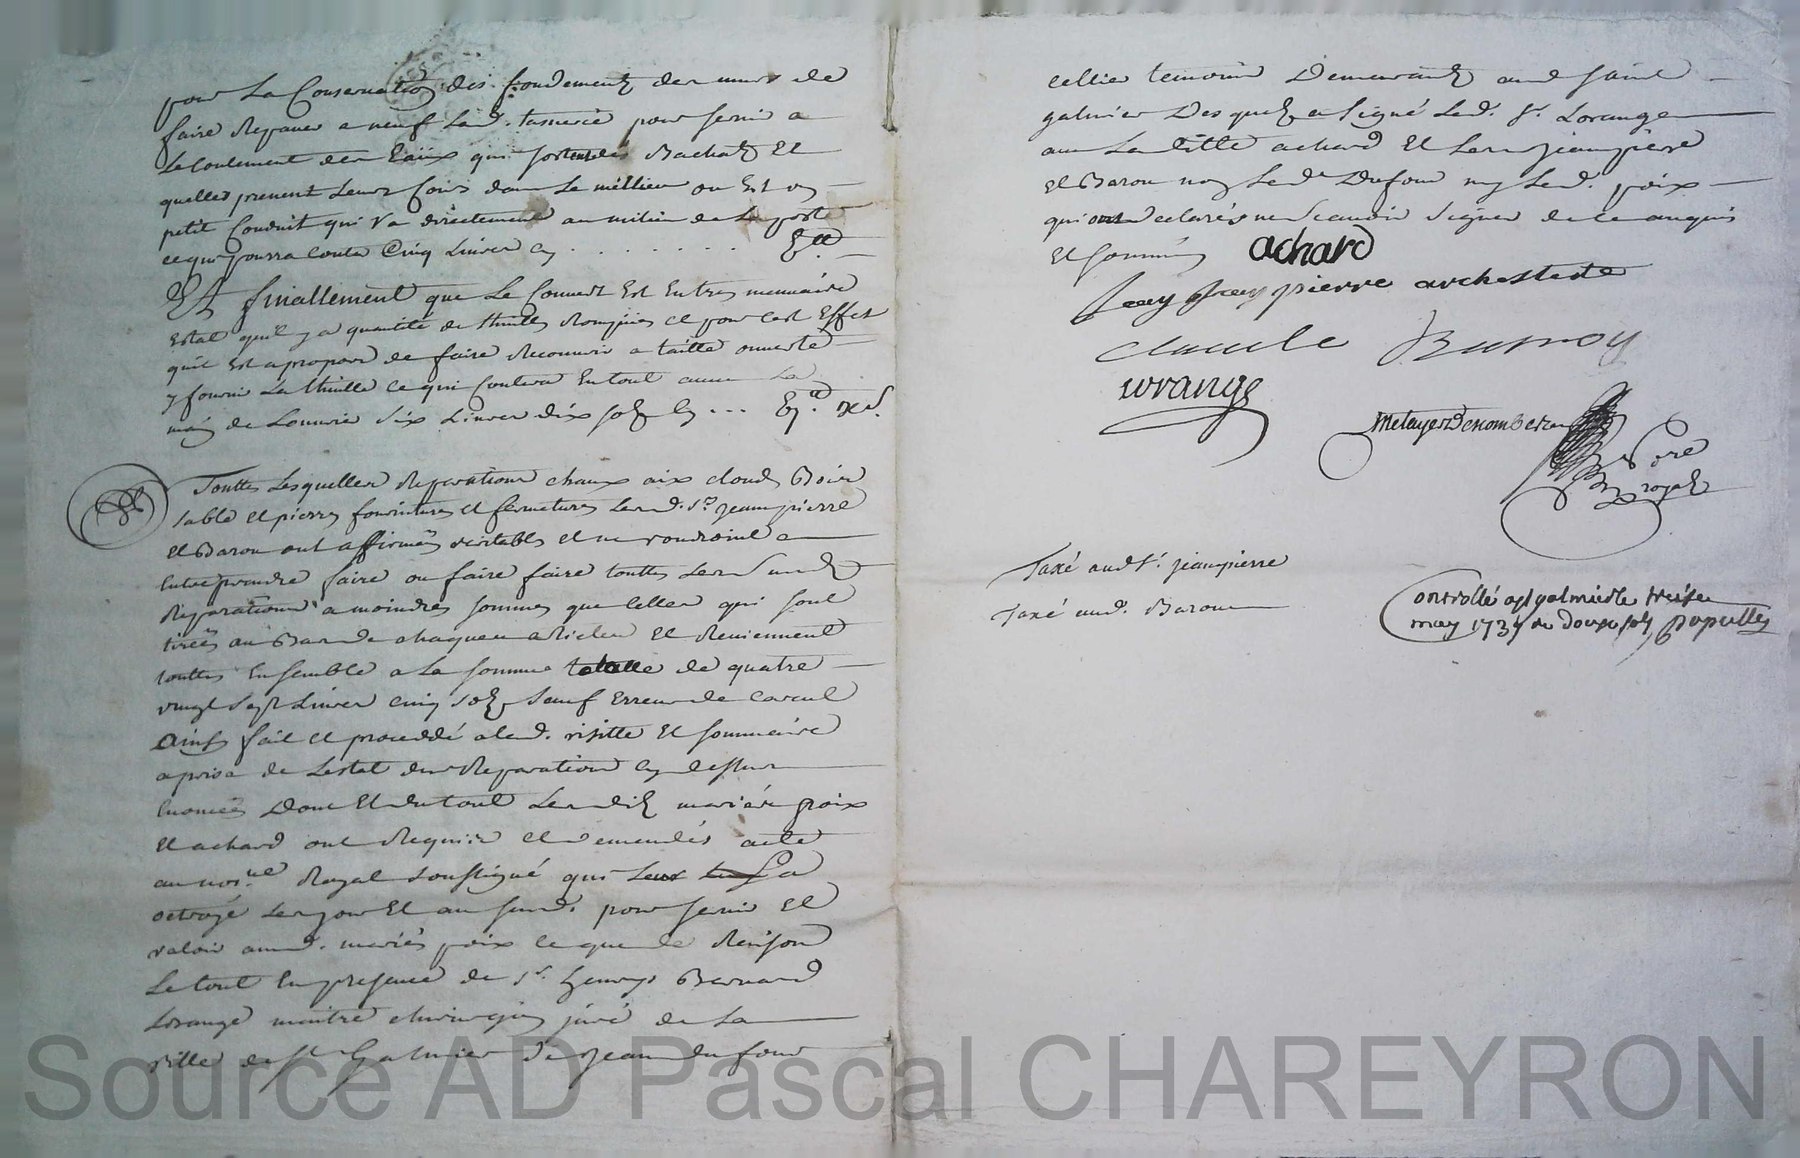 pour La Conservation des fondements des murs de
faire Repaver a neuf Lad. pour servir a
Lecoulement des Eaux qui sortent des Bachats Et
quelles prenent Leurs cours dans Le millieu ou Est un
petit Conduit qui va directement au milieu de La porte
ce qui pourra couter Cinq Livres cy . . . . . . .
Et finallement que Le Couvert Est En tres mauvaise
Estat quil y a quantité de thuilles Rompues et pour cest Effet
quil Est apropos de faire Recouvrir a taille ouverte
y fournir La thuille ce qui Coutera En tout avec La
main de Louvrier Six Livres dix sols Cy ...
Touttes Lesquelles Reparations chaux aix clouds Bois
sable et pierres fournitures et fermetures Lesd. Sr. jeanpierre
et Baron ont affirmés veritables et ne voudroint
Entreprendre faire ou faire faire touttes Lesd
Reparations a moindres sommes que Celles qui sont
tirées au Bas de chaques articles Et Reviennent
touttes Ensemble a La somme totalle de quatre
vingt Sept Livres cinq sols Sauf Erreur de Carcul
Ainsy fait et proceddé a lad. visitte Et sommaire
aprise de Lestat des Reparations cy dessus
Enoncés Dont Et du tout Lesdits mariés poix
Et achard ont Requis et demendés acte
au not.re Royal soussigné qui a
octroyé Les jour Et an susd. pour servir Et
valoir aud. mariés poix ce que de Raison
Le tout En presence de Sr. henrys Bernard
Lorange maitre chirurgien juré de La
ville de St Galmier De jean dufour
cellier temoins Demeurants aud Saint
galmier Desquels a Signé Led. Sr. Lorange
avec La ditte achard Et Lesd jeanpierre
et Baron non Led. Dufour ny Led. poix
qui ont declarés ne Scavoir Signer de ce anquis
Et sommés achard
Jean pierre archestete
claude
Lorange
Metayer
Nore
Royal
Taxé aud Sr. jeanpierre
Taxé aud. Baron
Controllé a St galmier le treise
may 1737 Re douze sols
Source AD Pascal CHAREYRON